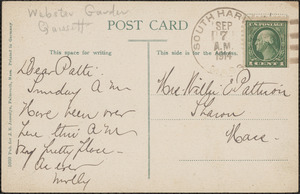 Webster Garden
POST CARD
This space for writing.
This space for address.
SOUTH HAR
SEP
7
A.M.
1914
Dear Patti:
Sunday A.M
Have been over
here this A.M
very pretty place
As ever
Molly
Mrs Willis E Patterson
Sharon
Mass.